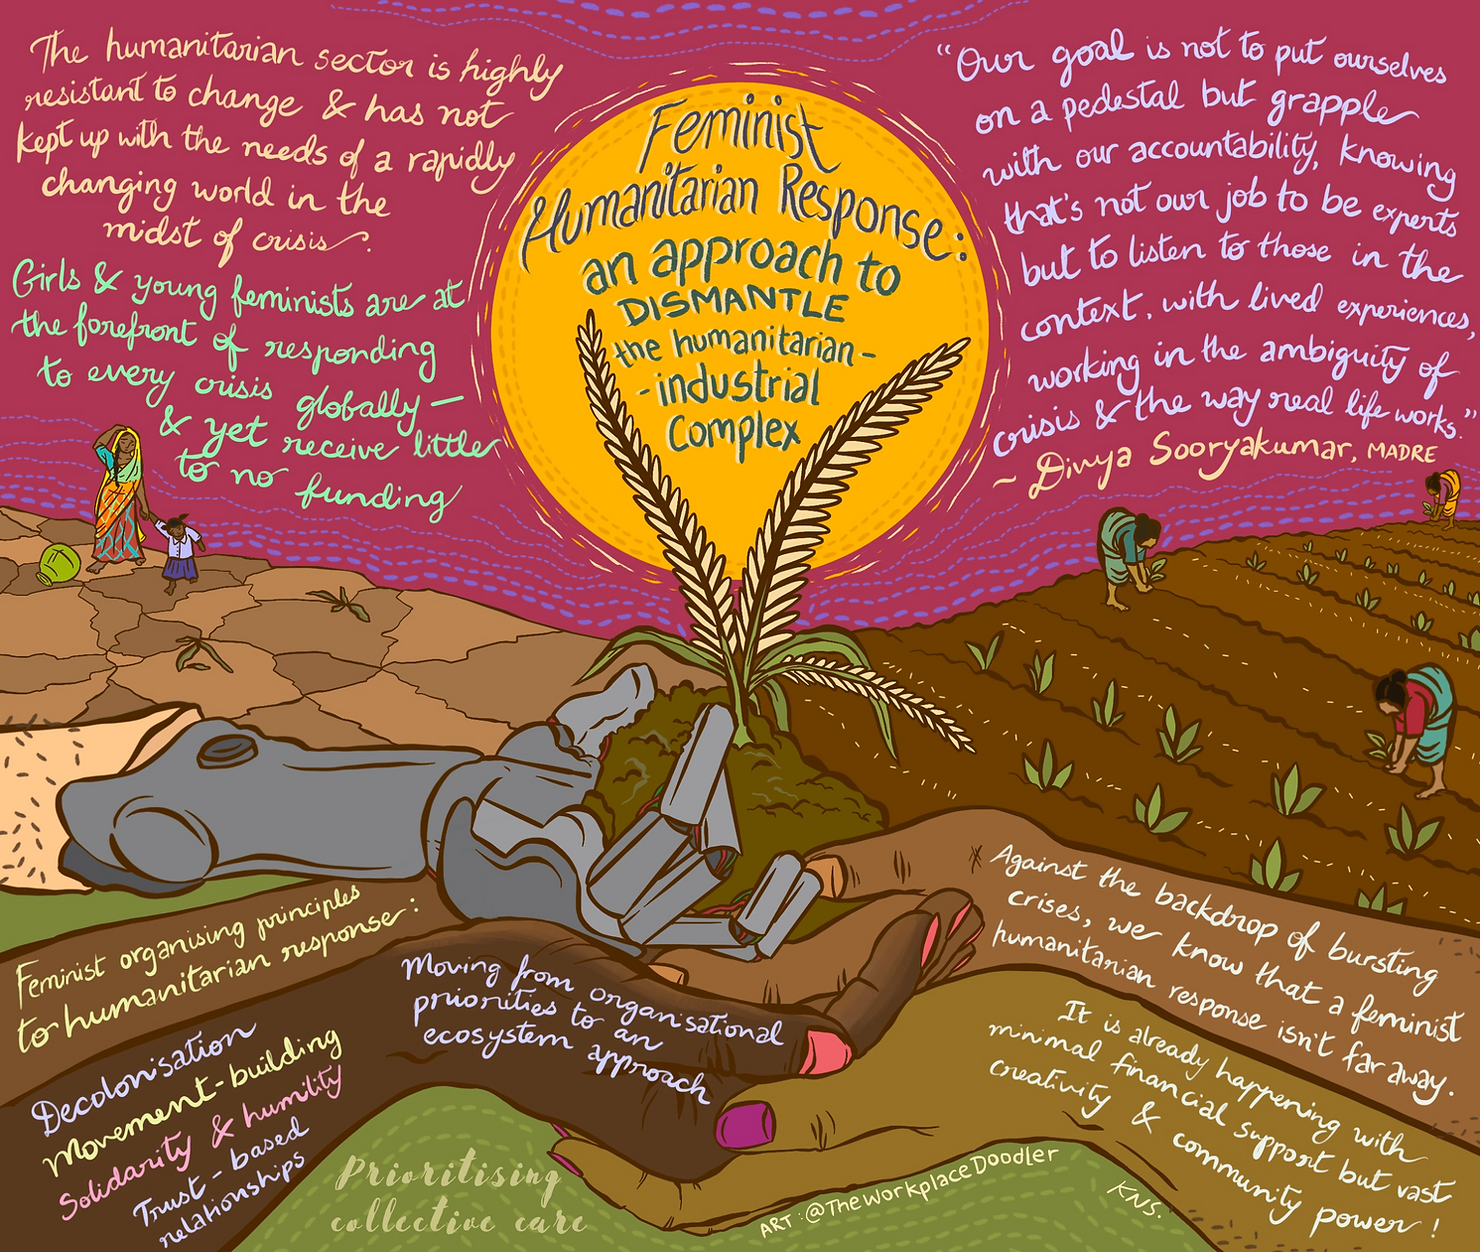 The humanitarian sector is highly
resistant to change & has not
kept up with the needs of a rapidly
changing world in the
midst of crisis.
Girls & young feminists are at
the forefront of responding
to every crisis globally —
& yet receive little
to no funding
Feminist
Humanitarian Response:
an approach to
DISMANTLE
the humanitarian-
-industrial
Complex
"Our goal is not to put ourselves
on a pedestal but grapple
with our accountability, knowing
that's not our job to be experts
but to listen to those in the
context, with lived experiences,
working in the ambiguity of
crisis & the way real life works."
~ Divya Sooryakumar, MADRE
Feminist organising principles
to humanitarian response:
Decolonisation
Movement-building
Solidarity & humility
Trust-based
relationships
Moving from organisational
priorities to an
ecosystem approach
Prioritising
collective care
Against the backdrop of bursting
crises, we know that a feminist
humanitarian response isn't far away.
It is already happening with
minimal financial support but vast
creativity & community power!
ART: @TheWorkplaceDoodler
KNS.